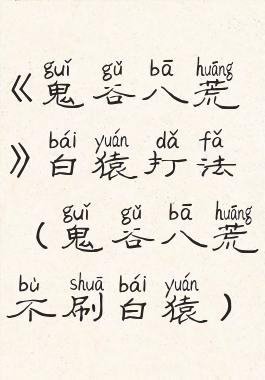 guǐ gǔ bā huāng
《鬼谷八荒
bái yuán dǎ fǎ
》白猿打法
guǐ gǔ bā huāng
（鬼谷八荒
bù shuā bái yuán
不刷白猿）